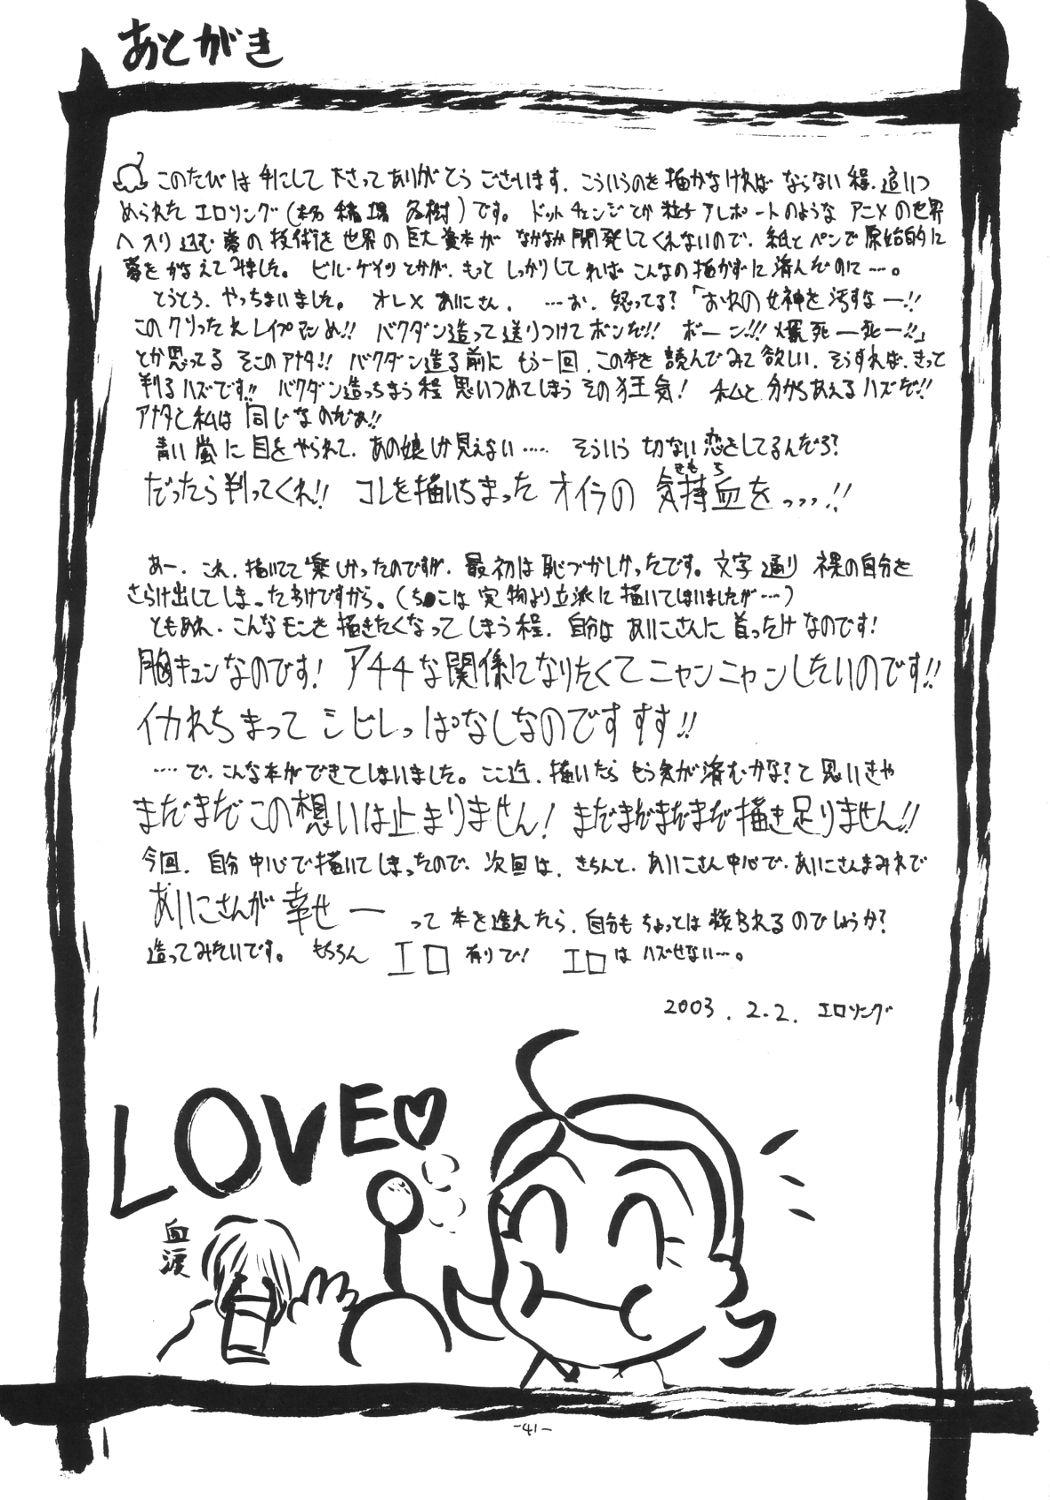 あとがき
このたびは手にして下さってありがとうございます。こういうのを描かなければならない程、追いつ
められたエロソング(本名 稲場 冬樹)です。ドットチェンジとか粒子アレポートのようなアニメの世界
へ入り込む夢の技術を世界の巨大資本がなかなか開発してくれないので、紙とペンで原始的に
夢をかなえてみました。ビル・ゲイツとかが、もっとしっかりしてればこんなの描かずに済んだのに…。
とうとう、やっちまいました。オレ×あいにさん、…お、怒ってる?「おれの女神を汚すなー!!
このクソったれレイプマンめ!! バクダン造って送りつけてボンだ!! ボーン!!! 爆死ー死ー!!」
とか思ってるそこのアナタ!! バクダン造る前にもう一回、この本を読んでみて欲しい。そうすれば、きっと
判るハズです!! バクダン造っちまう程思いつめてしまうその狂気! 私と分かちあえるハズだ!!
アナタと私は同じなのだぁ!!
青い嵐に目をやられて、あの娘しか見えない…… そういう切ない恋をしてるんだろ?
だったら判ってくれ!! コレを描いちまったオイラの気持血をっっっ!!
きもち
あー、これ、描いてて楽しかったのですが、最初は恥づかしかったです。文字通り裸の自分を
さらけ出してしまったわけですから。(ち●こは実物より立派に描いてしまいましたが…)
ともあれ、こんなモンを描きたくなってしまう程、自分はあいにさんに首ったけなのです!
胸キュンなのです! アチチな関係になりたくてニャンニャンしたいのです!!
イカれちまってシビレっぱなしなのですすす!!
…で、こんな本ができてしまいました。ここ迄、描いたらもう気が済むかな?と思いきや
まだまだこの想いは止まりません! まだまだまだまだ描き足りません!!
今回、自分中心で描いてしまったので、次回は、きちんと、あいにさん中心で、あいにさんまみれで
あいにさんが幸せー って本を造れたら、自分もちょっとは救われるのでしょうか?
造ってみたいです。もちろん エロ 有りで! エロはハズせない…。
2003.2.2. エロソング
LOVE♡
血涙
-41-